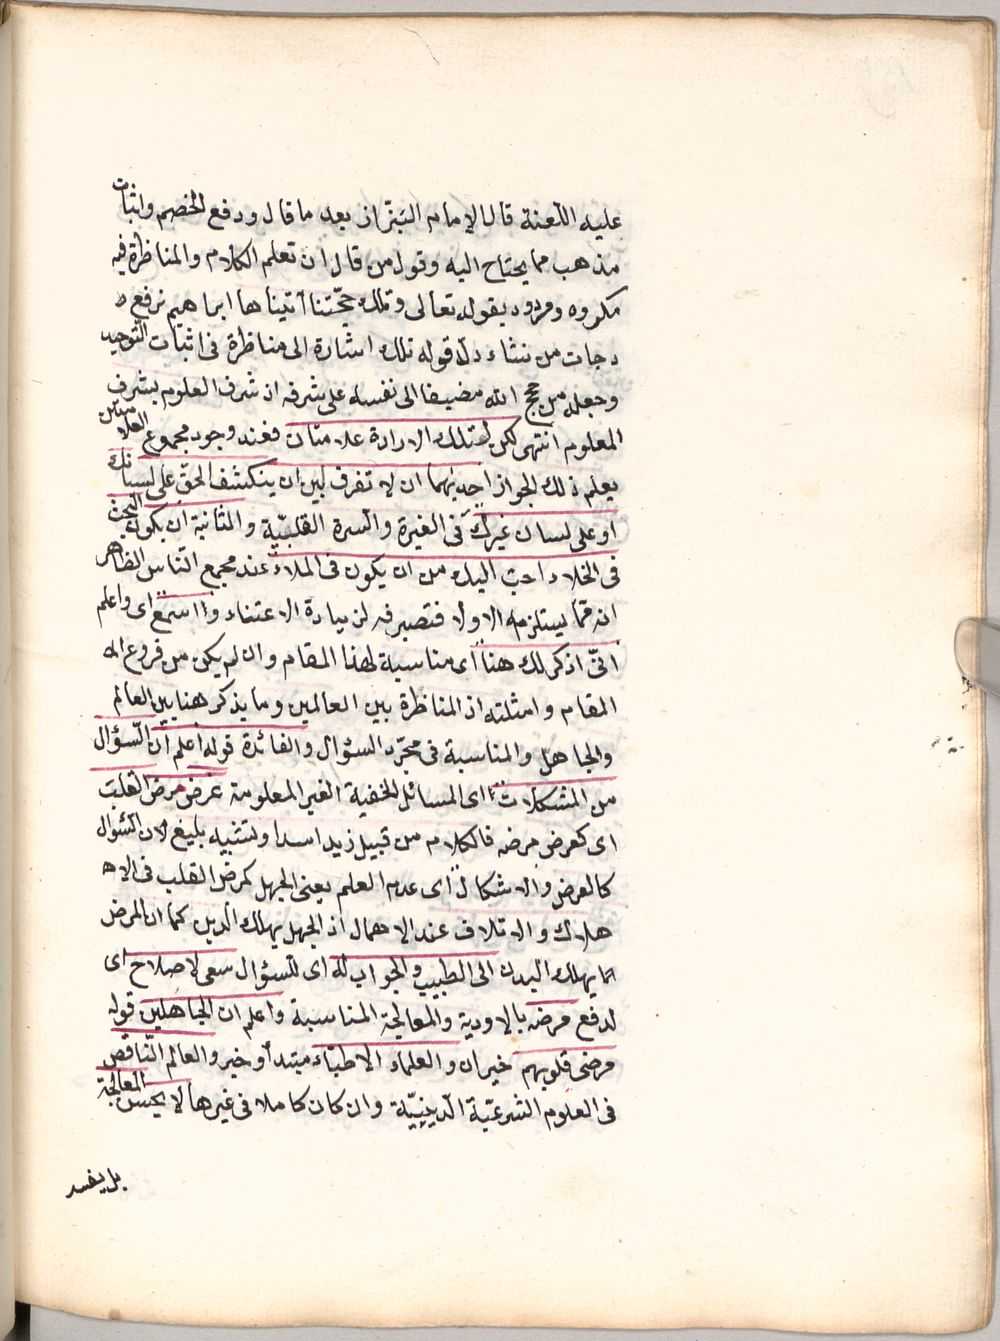 عليه اللعنة قال الامام البزازى بعد ما قال ودفع الخصم واثبات
مذهب مما يحتاج اليه وقول من قال ان تعلم الكلام والمناظرة فيه
مكروه ومردود بقوله تعالى وتلك حجّتنا آتيناها ابراهيم نرفع
درجات من نشاء دلّ قوله تلك اشارة الى مناظرة فى اثبات التوحيد
وجعله من حجج الله مضيفا الى نفسه على شرفه اذ شرف العلوم بشرف
المعلوم انتهى لكن لتلك الارادة علامتان فعند وجود مجموع العلامتين
يعلم ذلك الجواز احديهما ان لا تفرق بين ان ينكشف الحق على لسانك
او على لسان غيرك فى الغيرة والسرة القلبيّة والثانية ان يكون البحث
فى الخلاء احبّ اليك من ان يكون فى الملاء عند مجمع النّاس الظاهر
انه ممّا يستلزمه الاولا فتصير فه لزيادة الاعتناء واسمع اى واعلم
انىّ اذكر لك هنا اى مناسبة لهذا المقام وان لم يكن من فروع اله
المقام وامثلته اذ المناظرة بين العالمين وما يذكر هنا بين العالم
والجاهل والمناسبة فى مجرّد السؤال والفائدة قوله اعلم ان السّؤال
من المشكلات اى المسائل الخفية الغير المعلومة عرض مرض القلب
اى كعرض مرضه فالكلام من قبيل زيد اسد او تشبيه بليغ لان السّؤال
كالعرض والاشكال اى عدم العلم يعنى الجهل كمرض القلب فى الاه
هلاك والاتلاف عند الاهمال اذ الجهل يهلك الدين كما ان المرض
انما يهلك البدن الى الطبيب والجواب له اى للسّؤال سعى لاصلاح اى
لدفع مرضه بالاودية والمعالجة المناسبة واعلم ان الجاهلين قوله
مرضى قلوبهم خبر ان والعلماء الاطبّاء مبتدأ وخبر والعالم النّاقص
فى العلوم الشرعيّة الدّينيّة وان كان كاملا فى غيرها لا يحسن المعالجة
بل يفسد